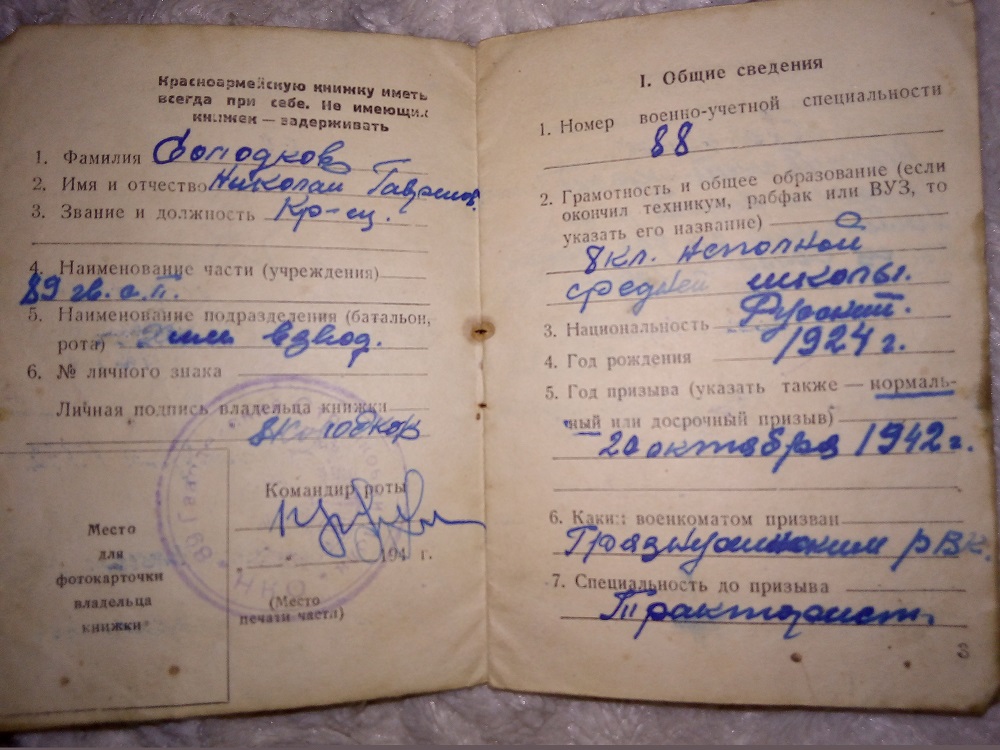 Красноармейскую книжку иметь
всегда при себе. Не имеющих
книжек — задерживать
1. Фамилия
2. Имя и отчество Николай
3. Звание и должность Кр-ец.
4. Наименование части (учреждения)
89 гв. с.п.
5. Наименование подразделения (батальон,
рота) Хим взвод.
6. № личного знака
Личная подпись владельца книжки
Командир роты
194 г.
Место
для
фотокарточки
владельца
книжки
(Место
печати части)
I. Общие сведения
1. Номер военно-учетной специальности
88
2. Грамотность и общее образование (если
окончил техникум, рабфак или ВУЗ, то
указать его название)
8 кл. неполной
средней школы.
3. Национальность Русский.
4. Год рождения 1924 г.
5. Год призыва (указать также — нормаль-
ный или досрочный призыв)
20 октября 1942 г.
6. Каким военкоматом призван
РВК.
7. Специальность до призыва
Тракторист.
3